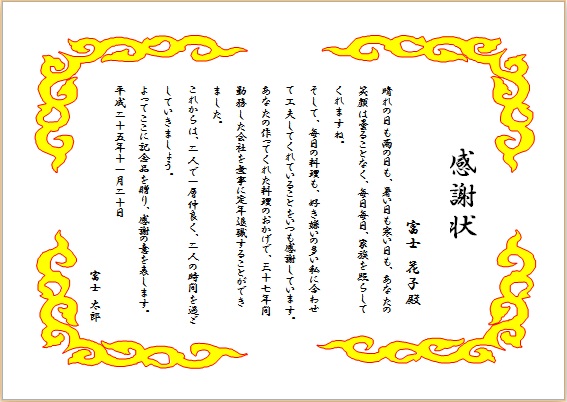 感謝状
富士 花子殿
晴れの日も雨の日も、暑い日も寒い日も、あなたの
笑顔は曇ることなく、毎日毎日、家族を照らして
くれますね。
そして、毎日の料理も、好き嫌いの多い私に合わせ
て工夫してくれていることをいつも感謝しています。
あなたの作ってくれた料理のおかげで、三十七年間
勤務した会社を無事に定年退職することができ
ました。
これからは、二人で一層仲良く、二人の時間を過ご
していきましょう。
よってここに記念品を贈り、感謝の意を表します。
平成二十五年十一月二十日
富士 太郎